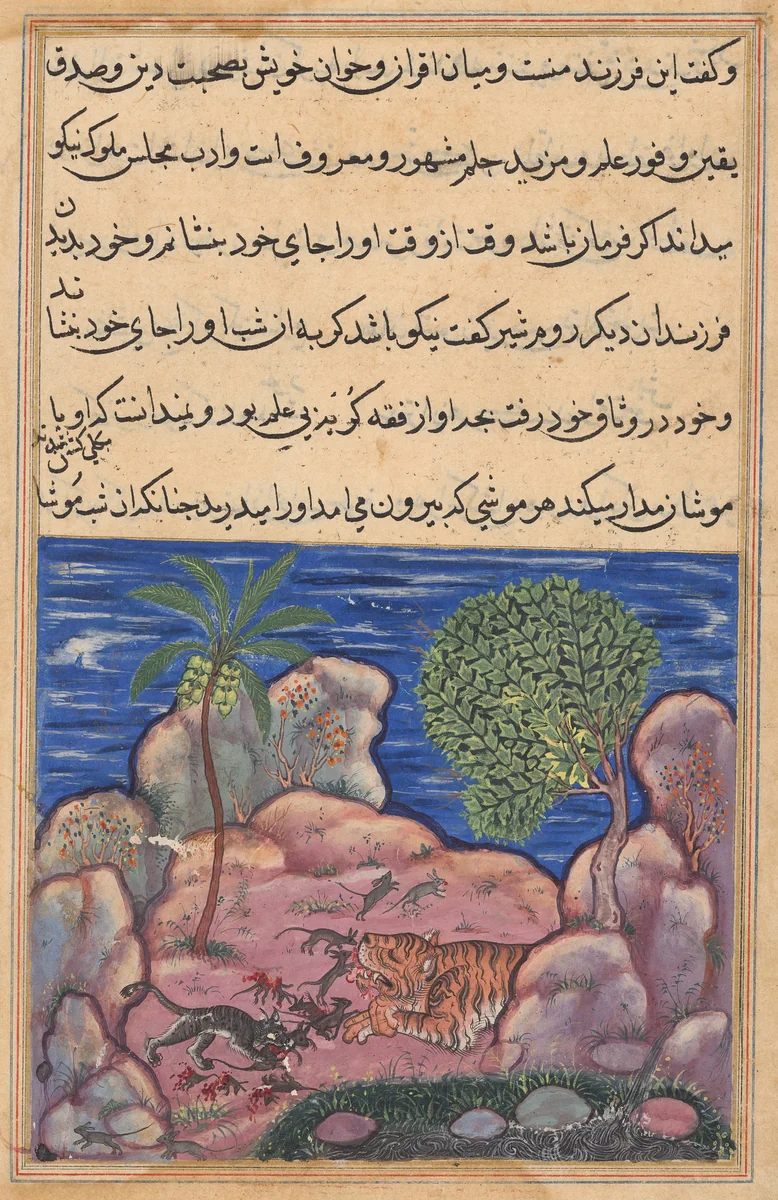 و گفت این فرزند منست و میان اقران و خوان خویش بصحبت دین و صدق
یقین و فور علم و مزید حلم مشهور و معروف است و ادب مجلس ملوک نیکو
میداند اکر فرمان باشد وقت از وقت او را جای خود بنشانم و خود بدیدن
فرزندان دیکر روم شیر کفت نیکو باشد کربه ان شب او را جای خود بنشاند
و خود در وثاق خود رفت بجه او از فقه کربزیی علم بود و نمیدانست که او با
موشان مدار میکند هر موشی که بیرون می امد او را میدرید جنانکه ان شب موشان